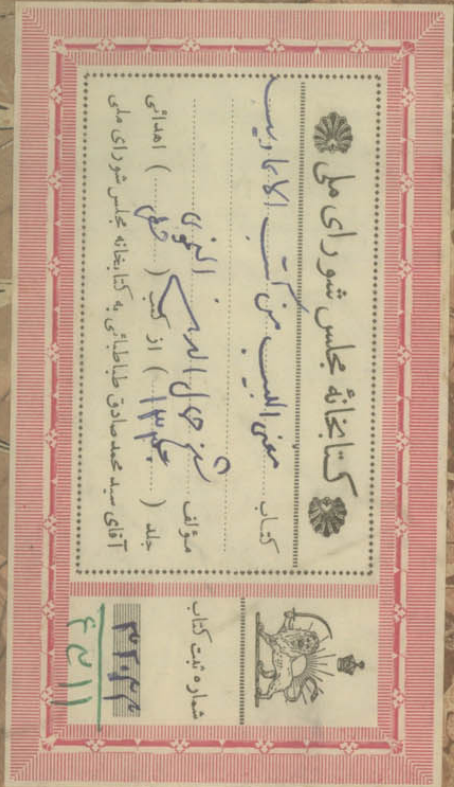 کتابخانهٔ مجلس شورای ملی
کتاب مغنی اللبیب من کتب الاعاریب
مؤلف شیخ جمال الدین النحوی
جلد ( ) از کتب ( خطی ) اهدائی
آقای سید محمد صادق طباطبائی به کتابخانه مجلس شورای ملی
شماره ثبت کتاب